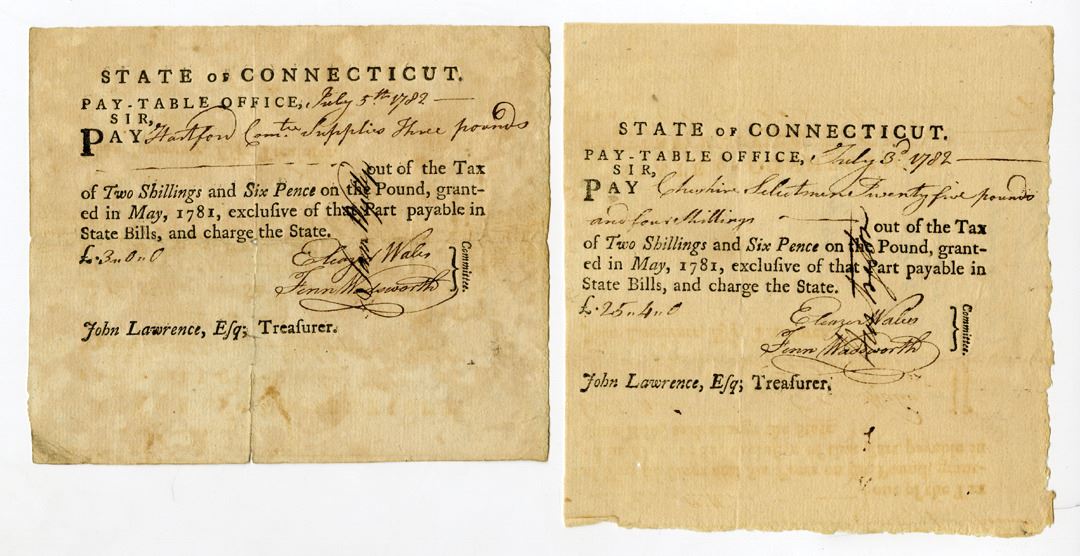 STATE OF CONNECTICUT.
PAY-TABLE OFFICE, July 5th 1782
SIR,
PAY Hartford Comtee Supplies Three pounds
out of the Tax
of Two Shillings and Six Pence on the Pound, grant-
ed in May, 1781, exclusive of that Part payable in
State Bills, and charge the State.
£.3,,0,,0
Eleazer Wales
Fenn Wadsworth
Committee.
John Lawrence, Eſq; Treaſurer.
STATE OF CONNECTICUT.
PAY-TABLE OFFICE, July 3d 1782
SIR,
PAY Cheshire Selectmen Twenty five pounds
and four Shillings out of the Tax
of Two Shillings and Six Pence on the Pound, grant-
ed in May, 1781, exclusive of that Part payable in
State Bills, and charge the State.
£.25,,4,,0
Eleazer Wales
Fenn Wadsworth
Committee.
John Lawrence, Eſq; Treaſurer.